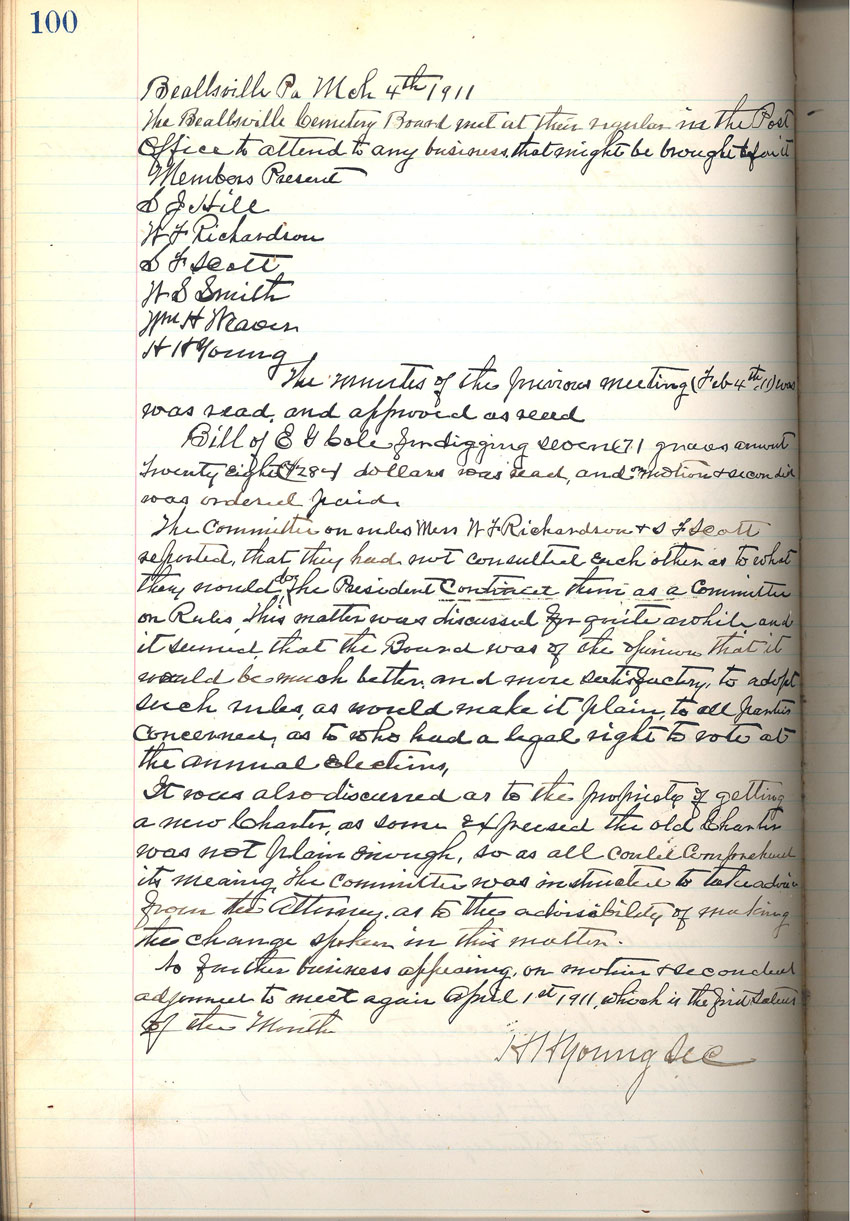 100
Beallsville Pa Mch 4th 1911
The Beallsville Cemetery Board met at their regular in the Post
Office to attend to any business, that might be brought befor it
Members Present
S J Hill
W F Richardson
S F Scott
W S Smith
Wm H Weaver
H H Young
The minutes of the previous meeting (Feb 4th, 11) was
was read, and approved as read
Bill of E G Cole for digging seven (7) graves amount
Twenty eight ($28) dollars was read, and on motion & seconded
was ordered paid.
The Committee on rules Mess W F Richardson & S F Scott
reported, that they had not consulted each other as to what
they would do, The President them as a Committee
on Rules, This matter was discussed for quite awhile and
it seemed that the Board was of the opinion that it
would be much better, and more satisfactory, to adopt
such rules, as would make it plain, to all parties
concerned, as to who had a legal right to vote at
the annual elections,
It was also discussed as to the propriety of getting
a new Charter, as some expressed the old Charter
was not plain enough, so as all could comprehend
its meaing, The committee was instructed to take advice
from the Attorney, as to the advisibility of making
the change spoken in this matter.
No further business appearing, on motion & seconded
adjourned to meet again April 1st 1911, which is the first Satur
of the Month
H H Young Sec